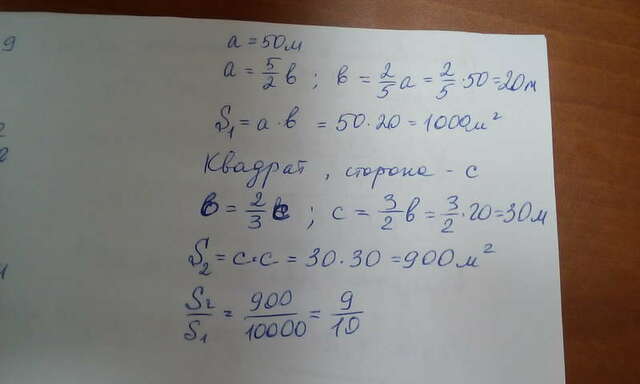 9
a = 50м
a = 5/2 в ; в = 2/5 a = 2/5 · 50 = 20м
S₁ = a · в = 50 · 20 = 1000м²
Квадрат , сторона - c
в = 2/3 c ; c = 3/2 в = 3/2 · 20 = 30м
S₂ = c · c = 30 · 30 = 900м²
S₂/S₁ = 900/10000 = 9/10